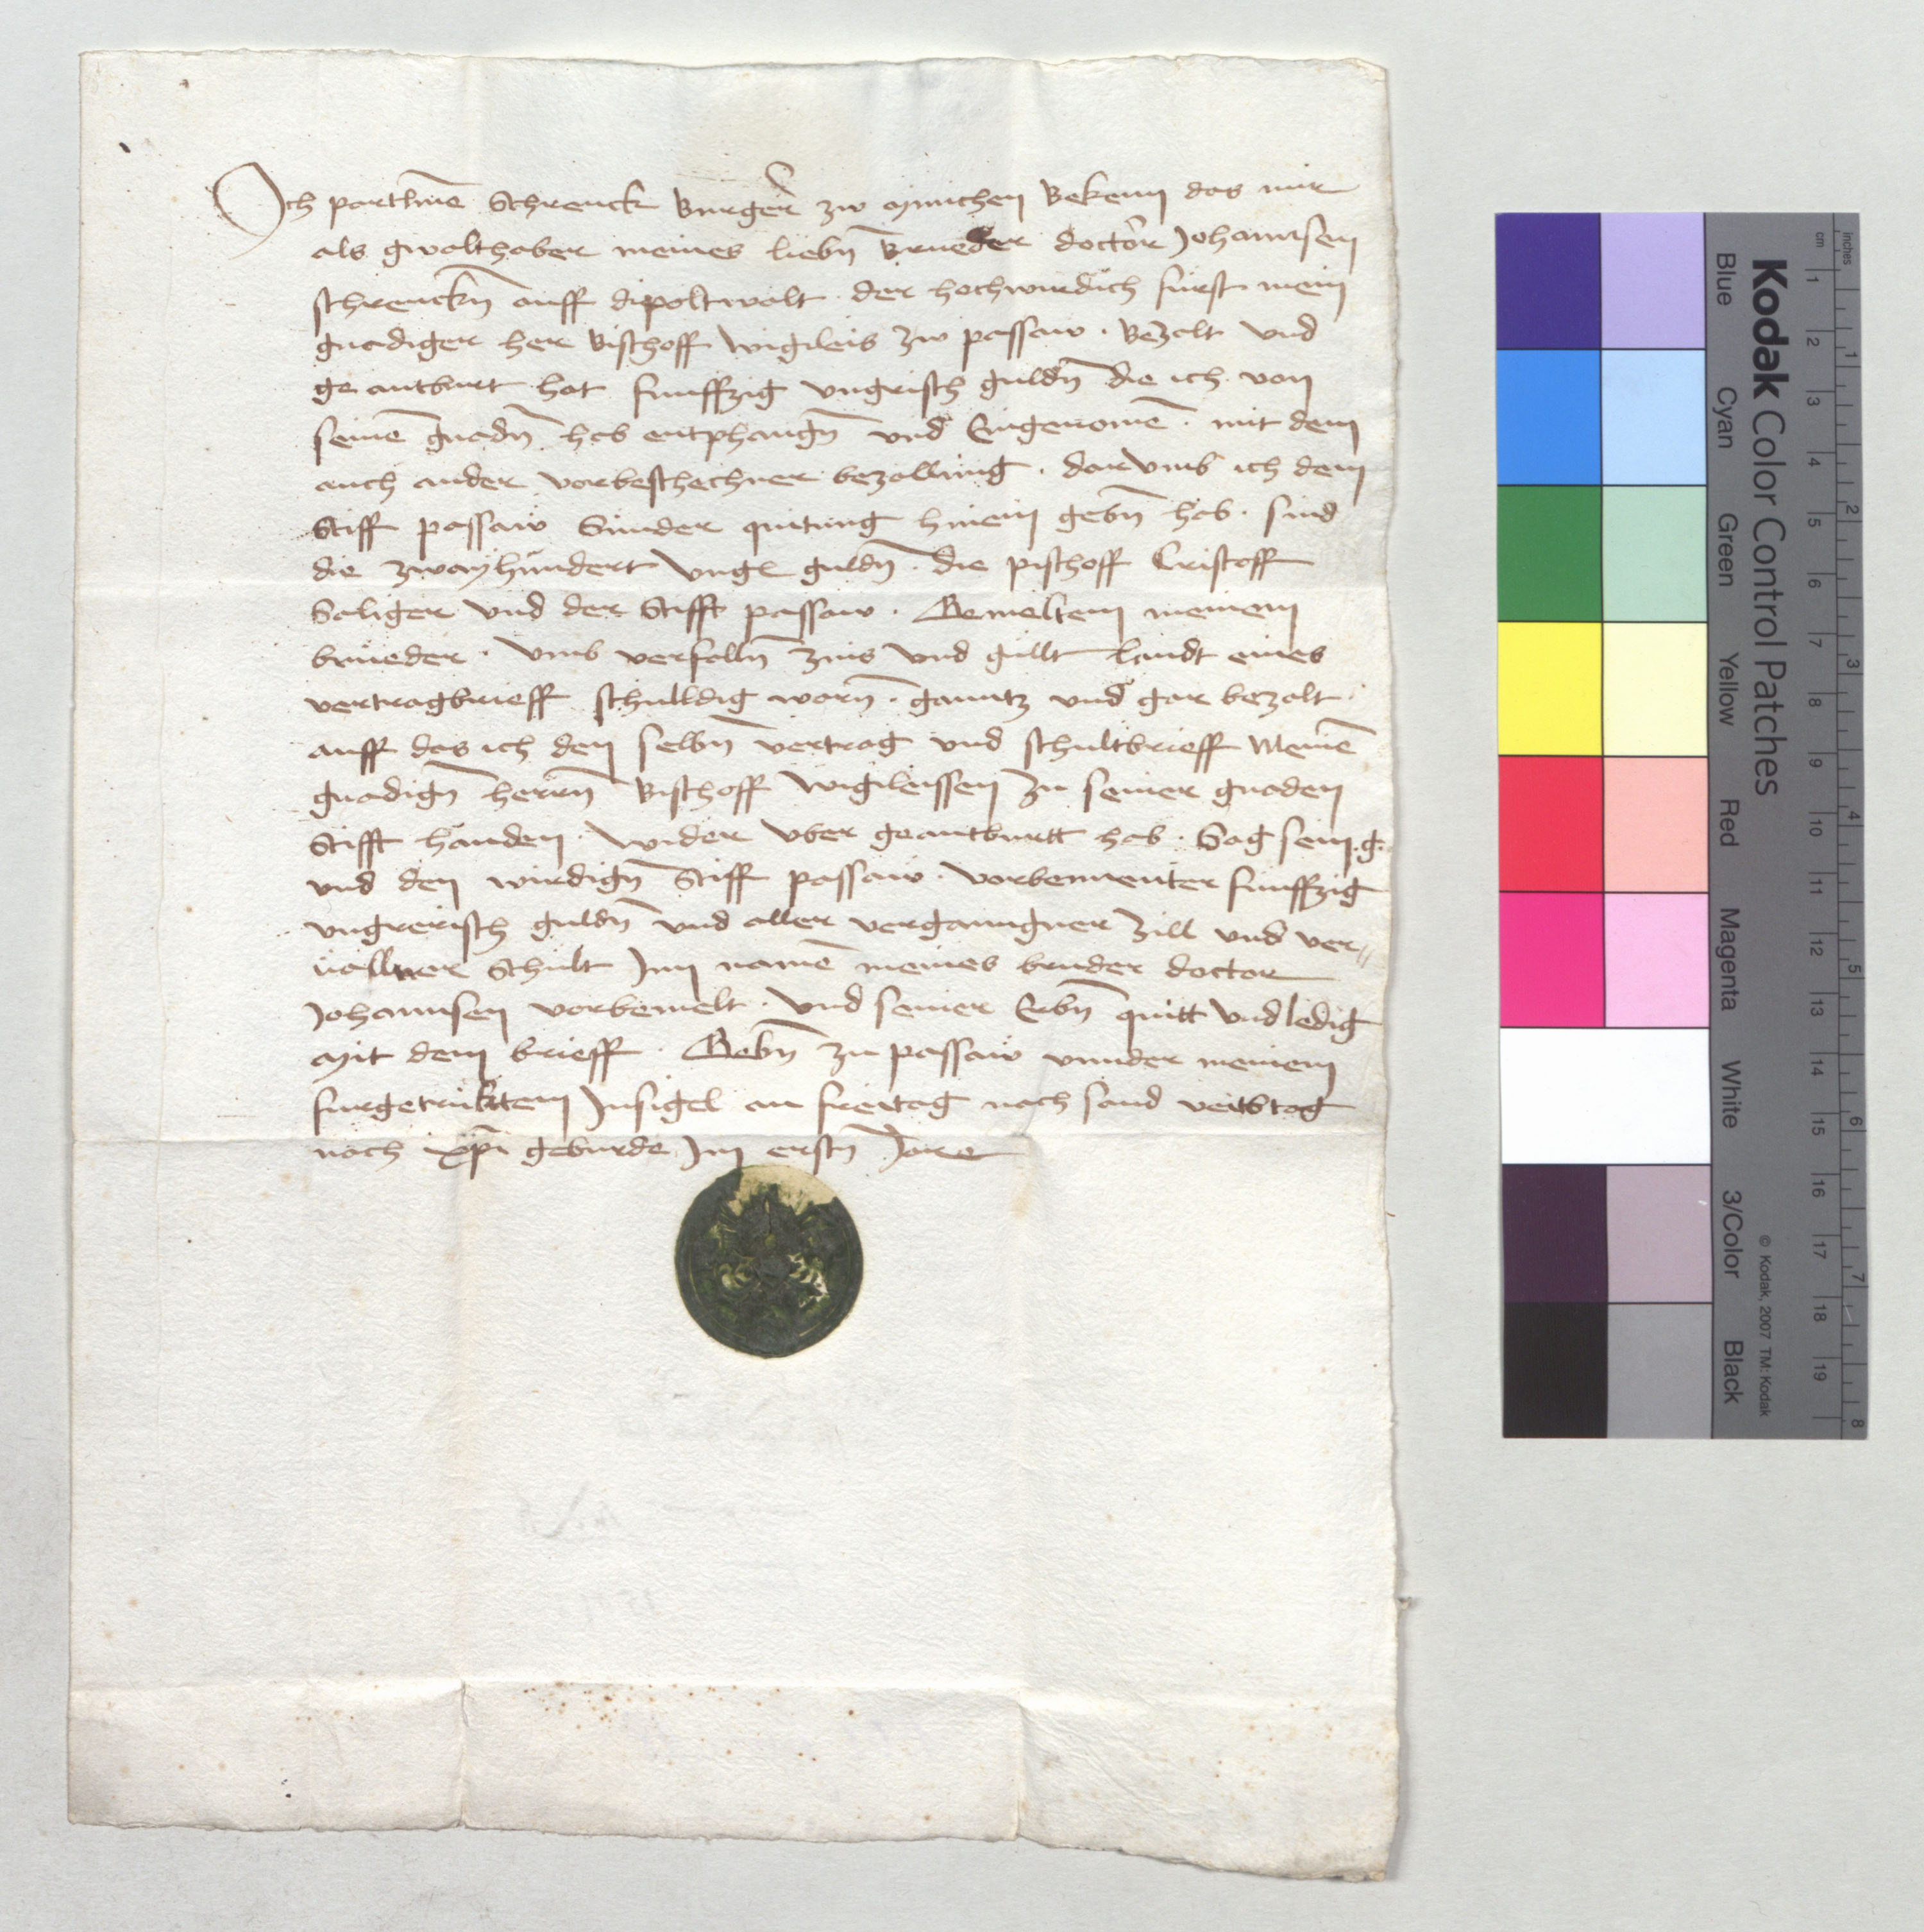 Ich partlme Schrenck Burger zw Munichen Beken das mir
als gwalthaber meines liebn Brueder doctor Johannsen
schrenckn auff dipoltwalt der hochwirdich furst mein
gnediger her Bischoff wigileis zw passaw . Bezalt und
ge antburt hat funffzig ungrisch guldn die ich von
seine gnadn hab entphangn und Eingenome . mit dem
auch ander vorbeschechner bezallung . darumb ich dem
Stiff passaw Sunder quitung hinein gebn hab . sind
die zwayhundert Ungr guldn . die pischoff Cristoff
Saliger und der Stifft passaw . Gemeltem meinem
brueder . umb verfalln zins und gullt laudt eines
vertragbrieff schulldig worn . ganntz und gar bezalt .
auff das ich den selbn vertrag und schultbrieff Meine
gnadign herrn Bischoff wigileissen zu seiner gnaden
Stifft handen . wider uber geantburtt hab . Sag sein . g .
und den wirdign Stiff passaw . vorbenenter funffzig
ungrerisch guldn und aller verganngner zill und ver//
uallner Schult Im name meines bruder doctor
Johannsen vorbemelt . und seiner Erbn quitt und ledig
Mit dem brieff . Gebn zu passaw unnder meinem
furgetrukttem Insigel an freitag nach sand veitstag
nach xpi geburde Im erstn Jare
Kodak Color Control Patches
Blue
Cyan
Green
Yellow
Red
Magenta
White
3/Color
Black
© Kodak, 2007 TM: Kodak
inches 1 2 3 4 5 6 7 8
cm 1 2 3 4 5 6 7 8 9 10 11 12 13 14 15 16 17 18 19